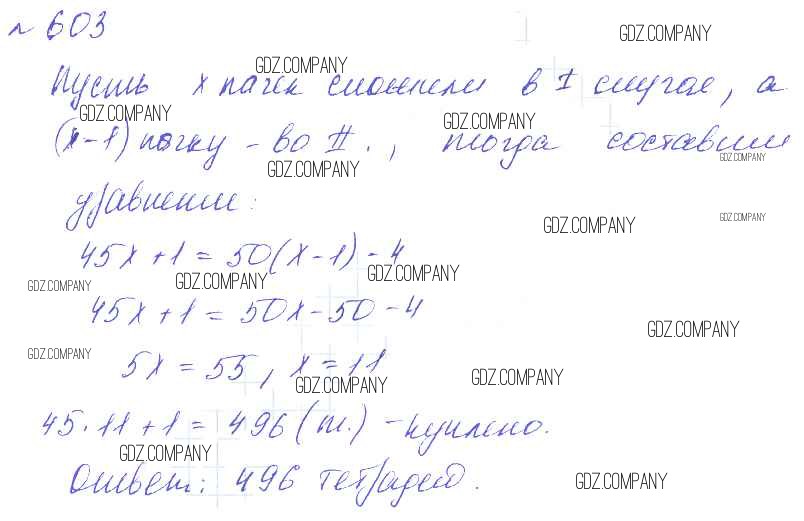 № 603
GDZ.COMPANY
Пусть x пачек сложили в I случае, а
GDZ.COMPANY
GDZ.COMPANY
GDZ.COMPANY
(x-1) пачку - во II., тогда составим
GDZ.COMPANY
GDZ.COMPANY
уравнение:
GDZ.COMPANY
GDZ.COMPANY
45x + 1 = 50(x - 1) - 4
GDZ.COMPANY
GDZ.COMPANY
GDZ.COMPANY
45x + 1 = 50x - 50 - 4
GDZ.COMPANY
GDZ.COMPANY
5x = 55, x = 11
GDZ.COMPANY
GDZ.COMPANY
45 · 11 + 1 = 496 (т.) - куплено.
GDZ.COMPANY
Ответ: 496 тетрадей.
GDZ.COMPANY